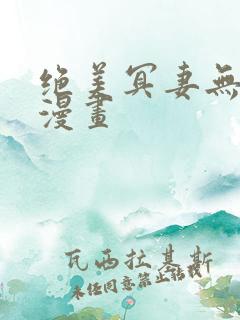 绝美冥妻無
漫畫
瓦西拉基斯
未经同意禁止转载